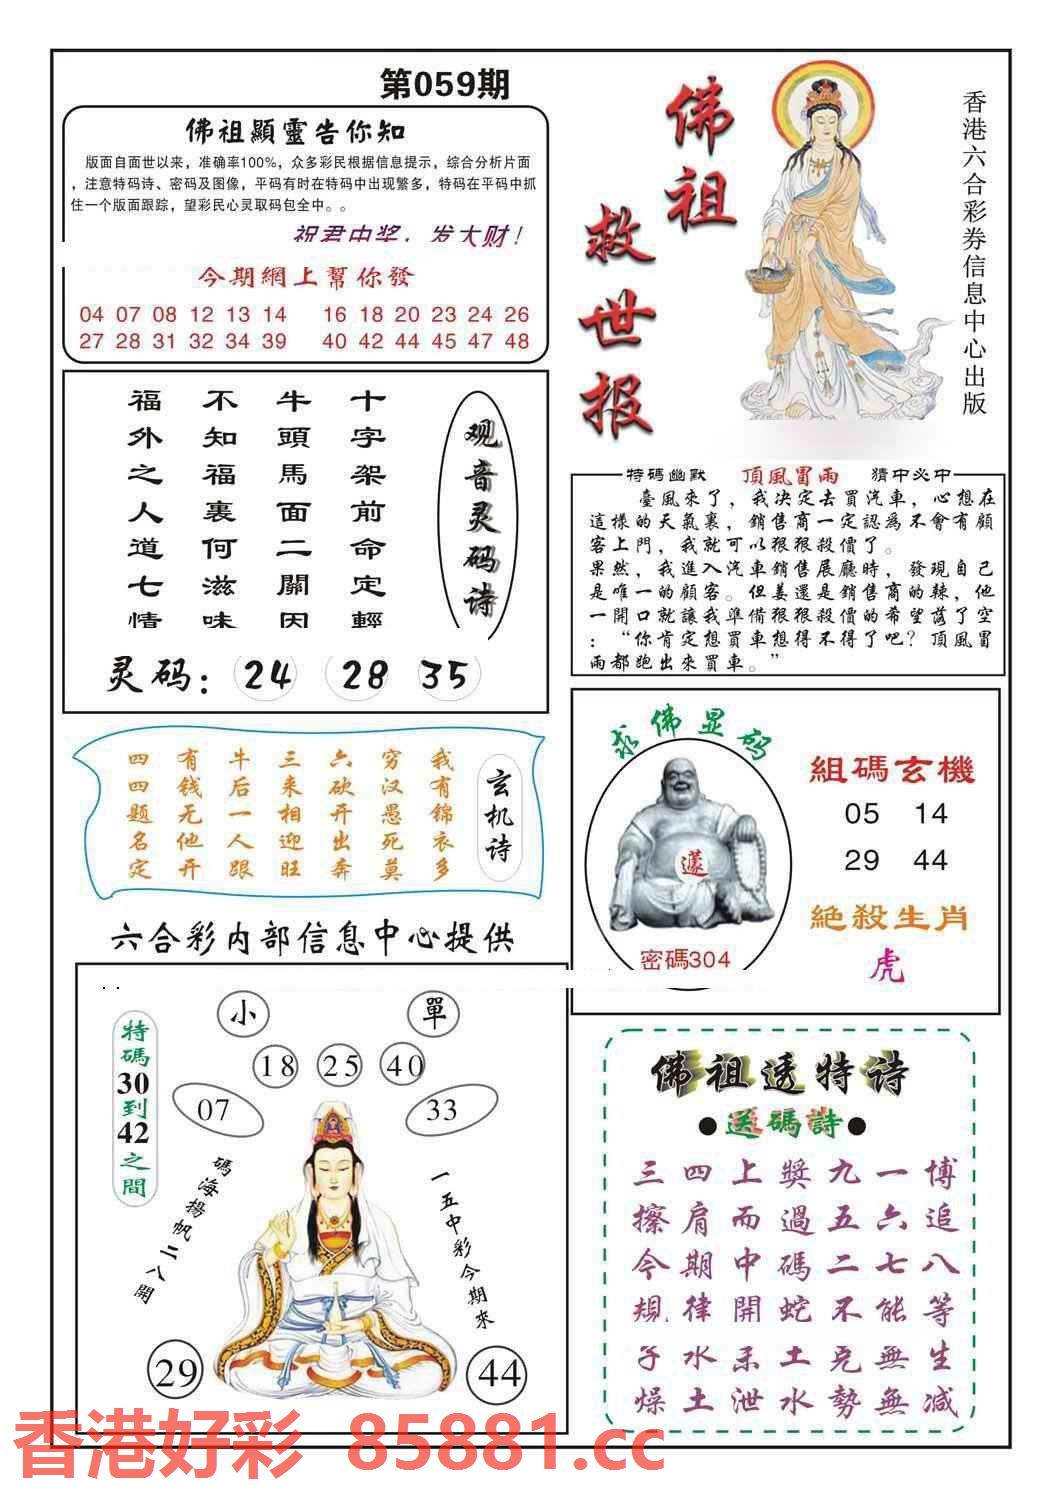 第059期
佛祖顯靈告你知
版面自面世以来，准确率100%，众多彩民根据信息提示，综合分析片面
，注意特码诗、密码及图像，平码有时在特码中出现繁多，特码在平码中抓
住一个版面跟踪，望彩民心灵取码包全中。。
祝君中奖，发大财！
今期網上幫你發
04 07 08 12 13 14 16 18 20 23 24 26
27 28 31 32 34 39 40 42 44 45 47 48
佛祖
救世报
香港六合彩券信息中心出版
观音灵码诗
十字架前命定輕
牛頭馬面二關因
不知福裏何滋味
福外之人道七情
灵码：24 28 35
特碼幽默 頂風冒雨 猜中必中
臺風來了，我决定去買汽車，心想在
這樣的天氣裏，銷售商一定認為不會有顧
客上門，我就可以狠狠殺價了。
果然，我進入汽車銷售展廳時，發現自己
是唯一的顧客。但姜還是銷售商的辣，他
一開口就讓我準備狠狠殺價的希望落了空
：“你肯定想買車想得不得了吧？頂風冒
雨都跑出來買車。”
玄机诗
我有锦衣多
穷汉愚死莫
六砍开出奔
三来相迎旺
牛后一人跟
有钱无他开
四四题名定
求佛显码
密碼304
組碼玄機
05 14
29 44
絕殺生肖
虎
六合彩内部信息中心提供
特碼30到42之間
小 單
18 25 40
07 33
碼海揚帆二八開
一五中彩今期來
29 44
佛祖透特诗
●送碼詩●
三四上獎九一博
擦肩而過五六追
今期中碼二七八
規律開蛇不能等
子水未土克無生
燥土泄水勢無减
香港好彩 85881.cc